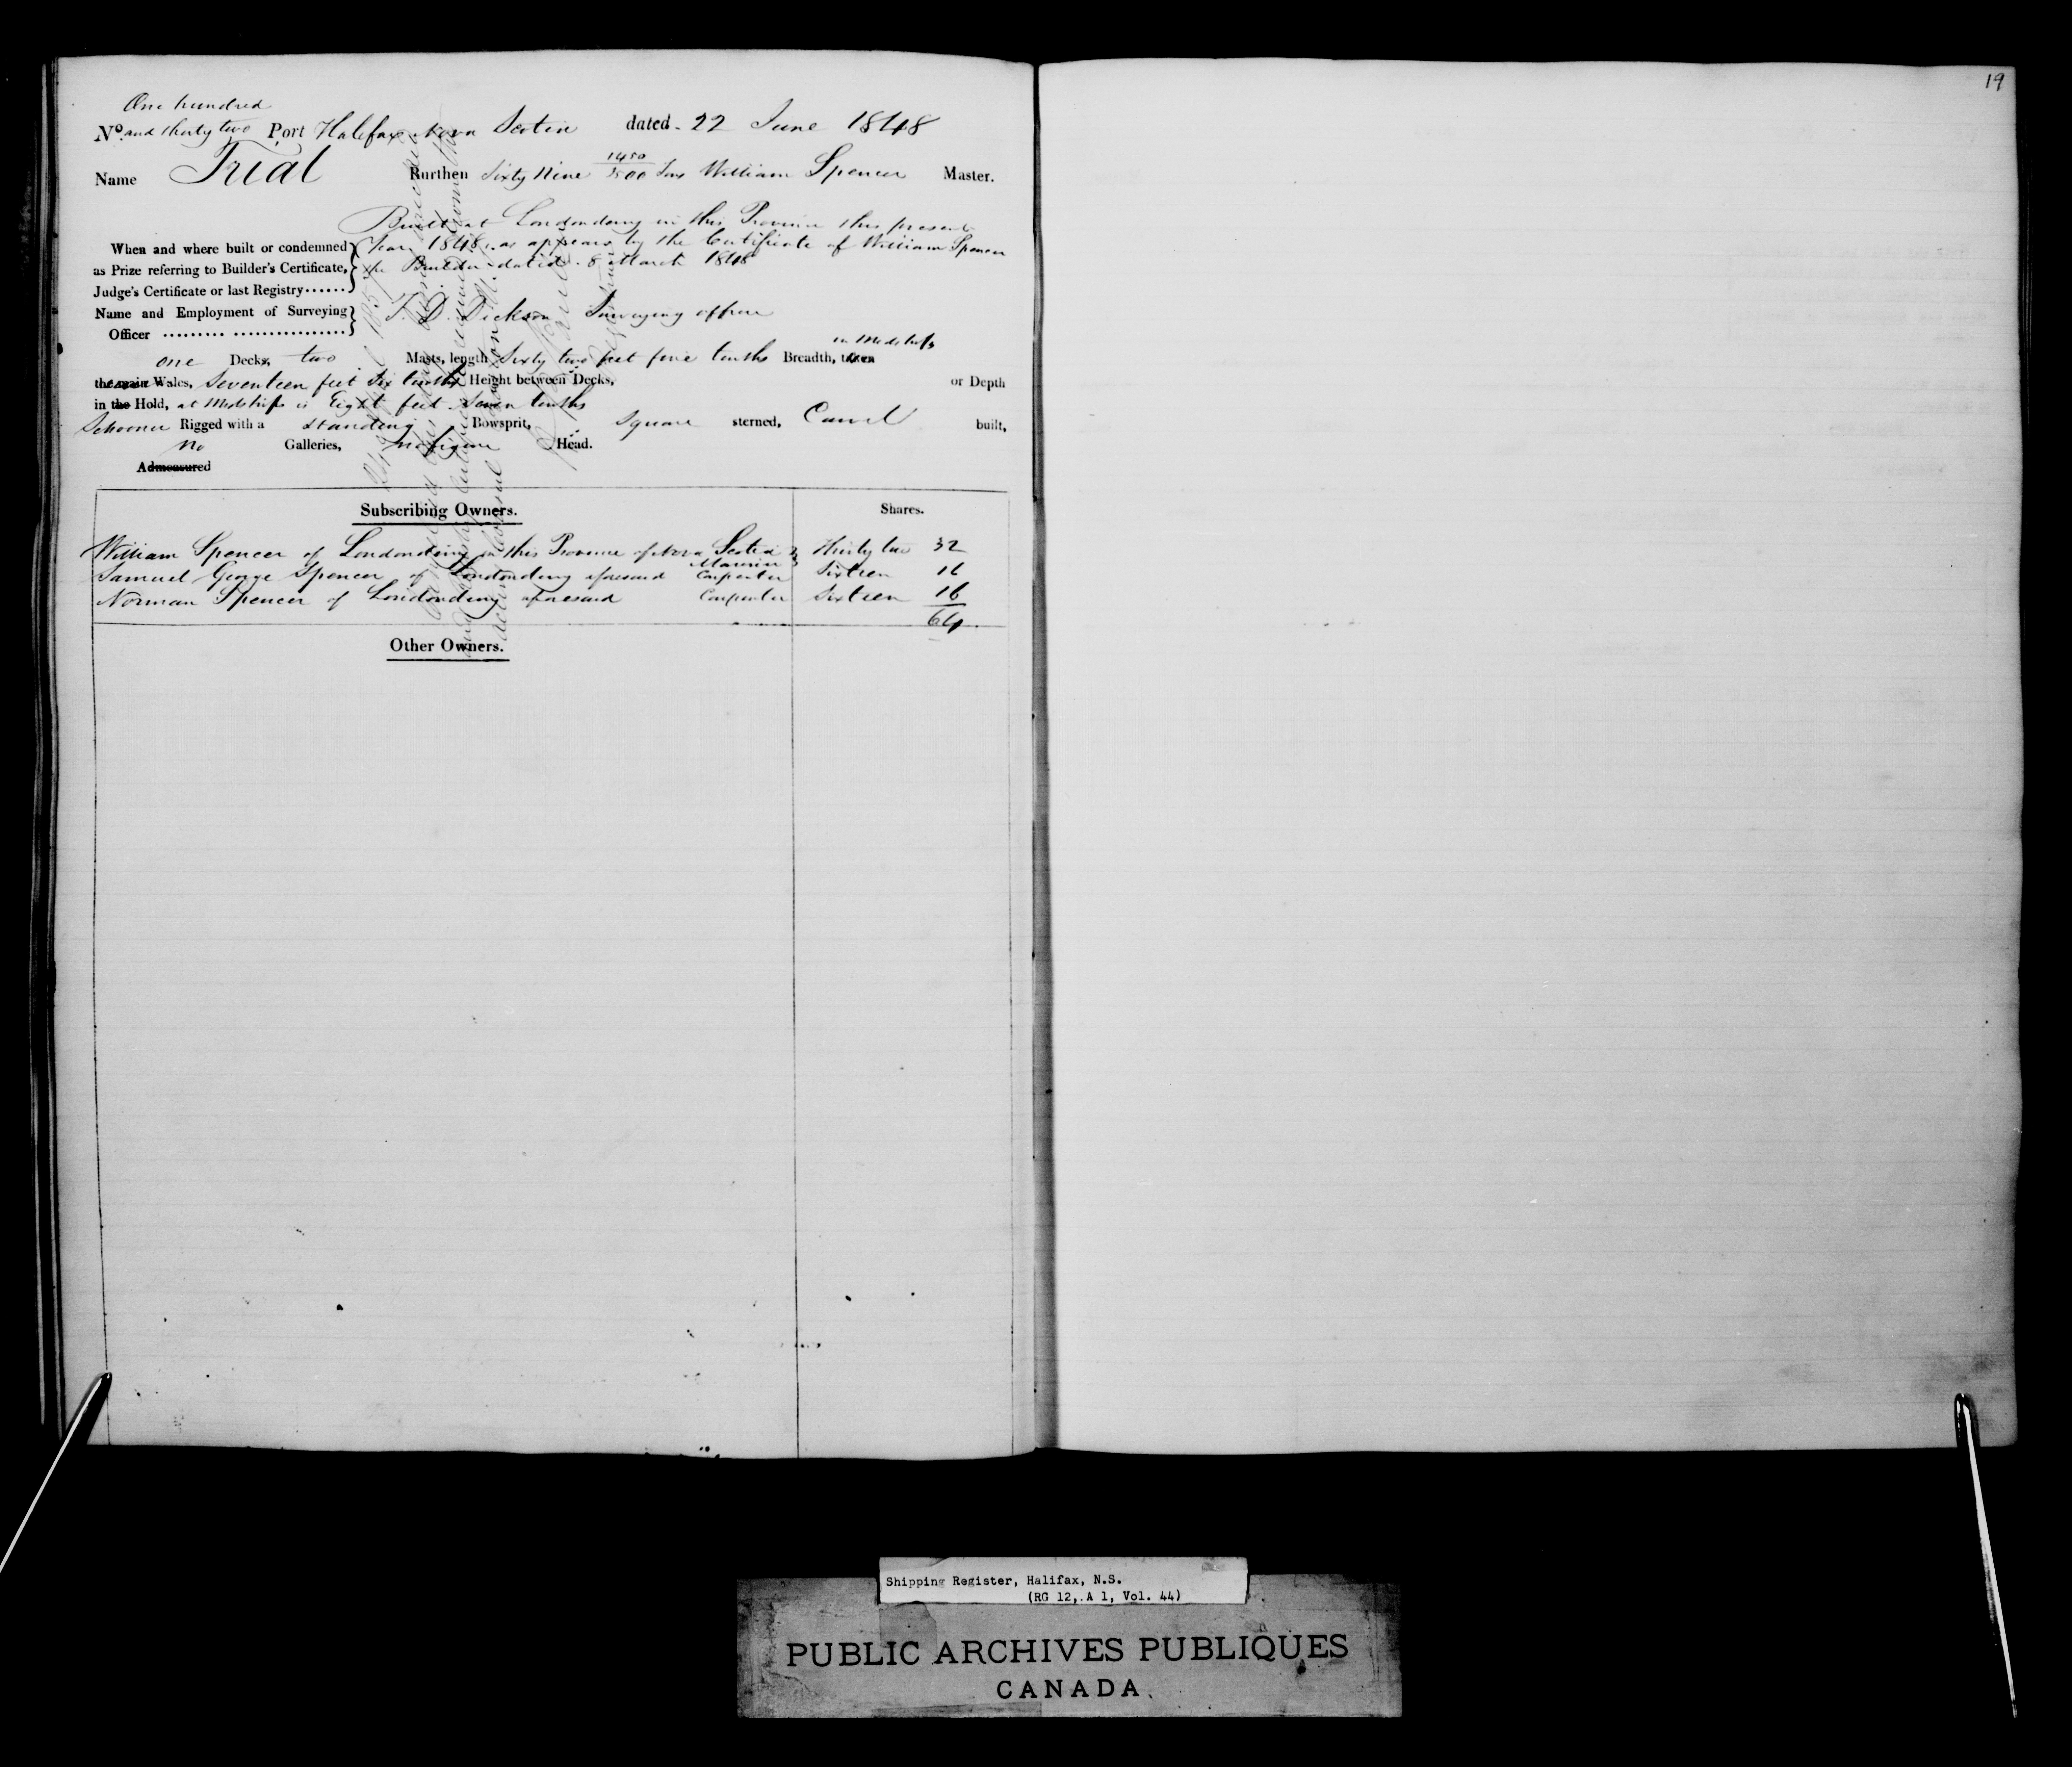 19
One hundred
No. and thirty two Port Halifax Nova Scotia dated. 22 June 1848
Name Trial Burthen Sixty Nine 1450/3500 Tons William Spencer Master.
Built at Londonderry in this Province this present
When and where built or condemned year 1848. as appears by the Certificate of William Spencer
as Prize referring to Builder's Certificate, the Builder dated. 8 March 1848
Judge's Certificate or last Registry......
Name and Employment of Surveying
Officer ......... ................ T. D. Dickson Surveying officer
in Midships
one Decks, two Masts, length Sixty two feet five tenths Breadth, taken
the main Wales, Seventeen feet Six tenths Height between Decks, or Depth
in the Hold, at Midships is Eight feet Seven tenths
Schooner Rigged with a Standing Bowsprit, Square sterned, Carvel built,
no Galleries, no figure Head.
Admeasured
Subscribing Owners. Shares.
William Spencer of Londonderry in this Province of Nova Scotia Mariner Thirty two 32
Samuel George Spencer of Londonderry aforesaid Carpenter Sixteen 16
Norman Spencer of Londonderry aforesaid Carpenter Sixteen 16
64
Other Owners.
Shipping Register, Halifax, N.S.
(RG 12, A 1, Vol. 44)
PUBLIC ARCHIVES PUBLIQUES
CANADA